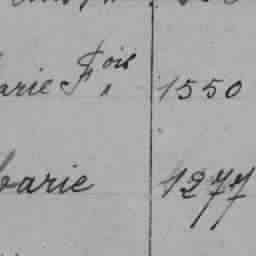 arie Fois, 1550
barie 1277